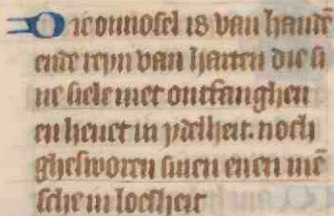 Die onnosel is van handē
ende reyn van harten die si
ne siele niet ontfanghen
en heuet in ydelheit. noch
ghesworen sinen euen mē
sche in loesheit